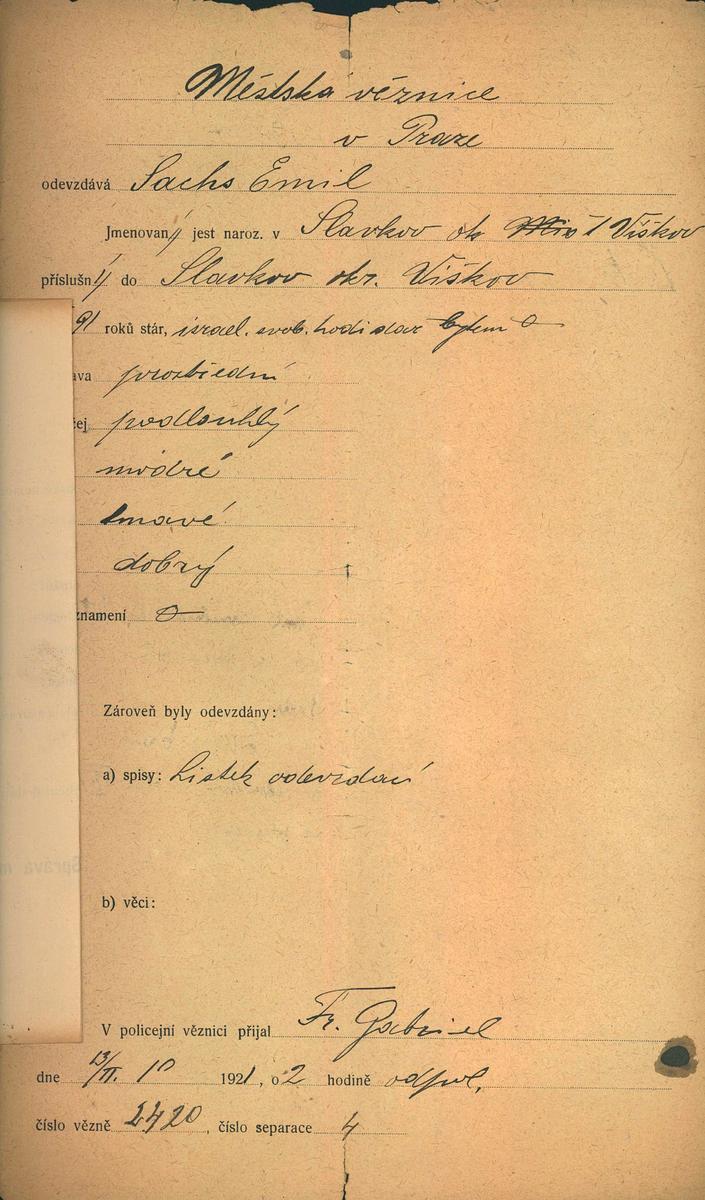 Městska věznice
v Praze
odevzdává Sachs Emil
Jmenovaný jest naroz. v Slavkov ok Viškov
příslušný do Slavkov okr. Viškov
91 roků stár, israel. svob. hodinář bytem 0
ava prostřední
čej podlouhlý
modré
tmavé
dobrý
znamení 0
Zároveň byly odevzdány:
a) spisy: Lístek odevzdací
b) věci:
V policejní věznici přijal Fr. Gabriel
dne 13/II. 1921, o 2 hodině odpol.
číslo vězně 2420, číslo separace 4